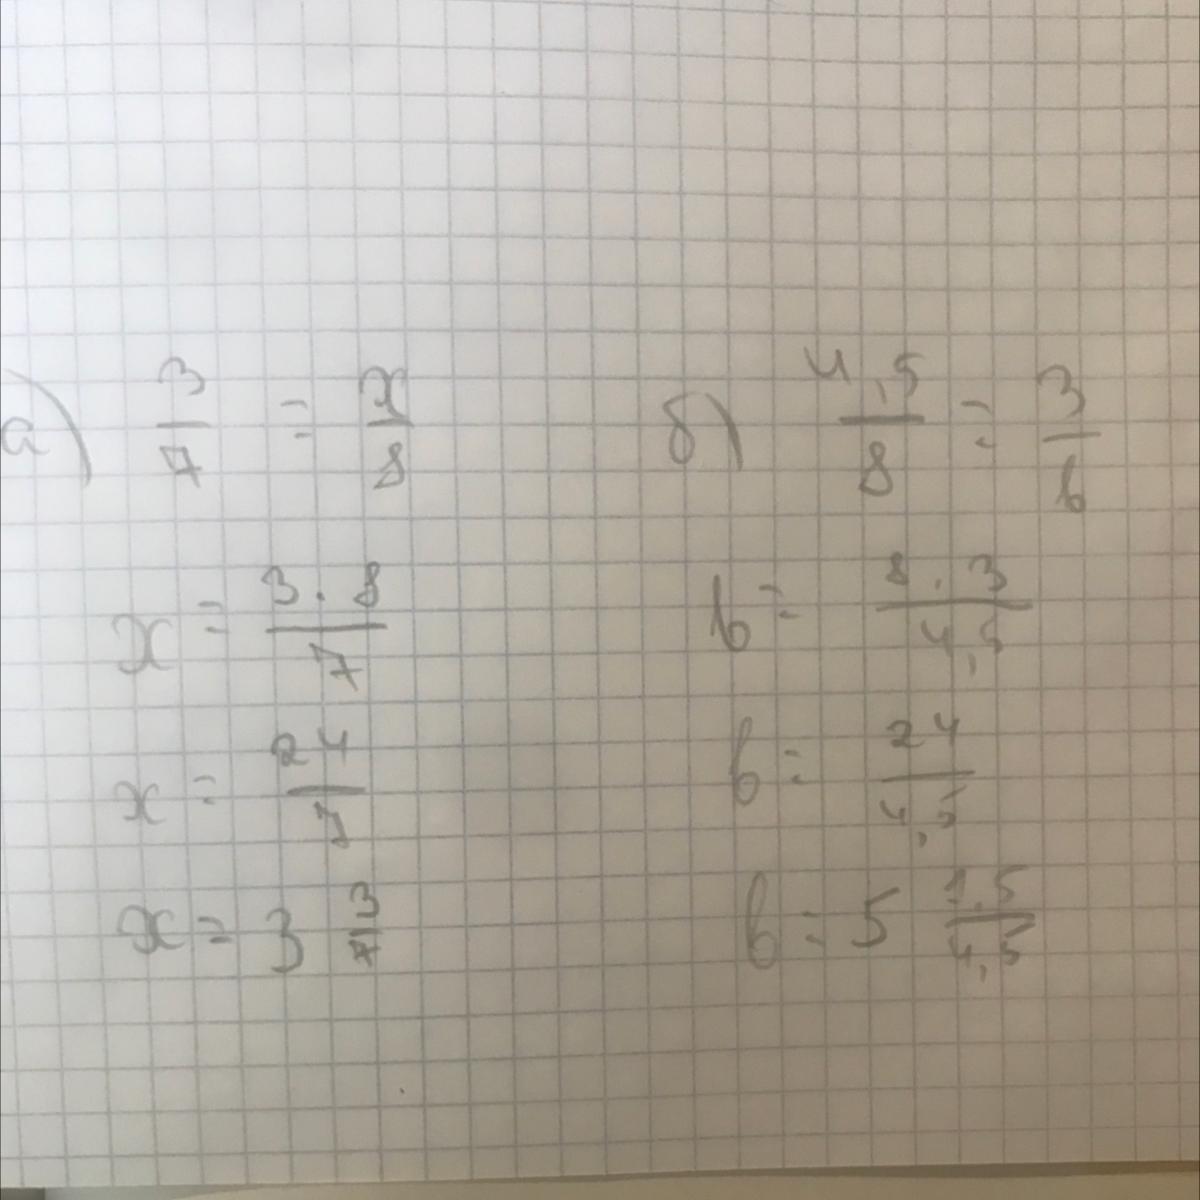 а) 3/7 = x/8
x = 3 · 8/7
x = 24/7
x = 3 3/7
б) 4,5/8 = 3/b
b = 8 · 3/4,5
b = 24/4,5
b = 5 1,5/4,5